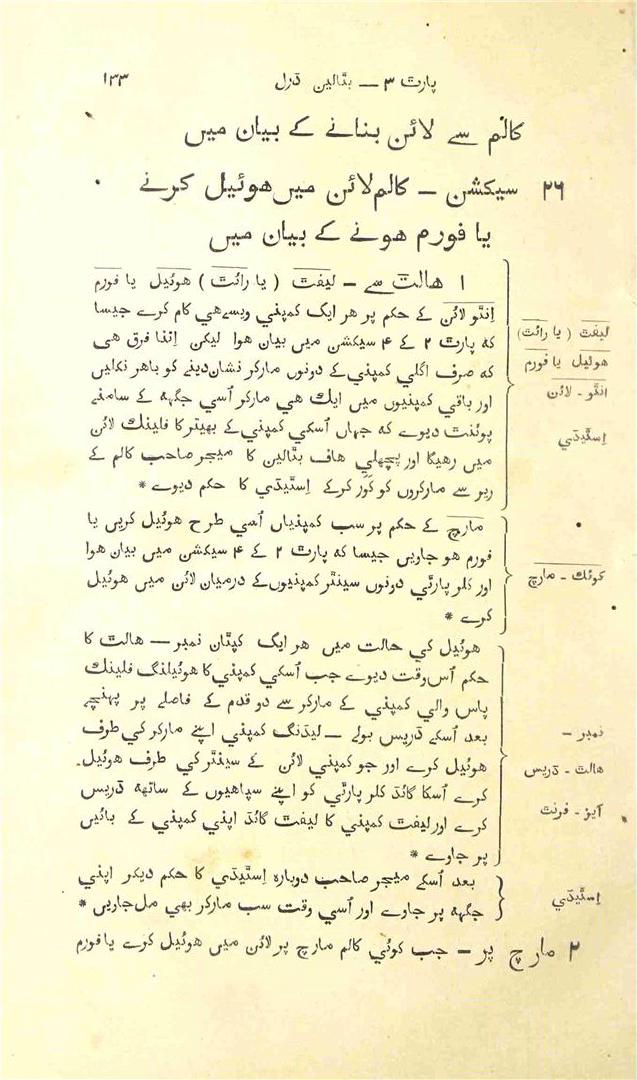 پارٹ ٣ — بٹالین ڈرل ١٣٣
کالم سے لائن بنانے کے بیان میں
٢٦ سیکشن — کالم لائن میں هوئیل کرنے
یا فورم هونے کے بیان میں
١ هالٹ سے — لیفٹ ( یا رائٹ ) هوئیل یا فورم
اِنٹو لائن کے حکم پر هر ایک کمپني ویسے هي کام کرے جیسا
که پارٹ ٢ کے ۴ سیکشن میں بیان هوا لیکن اِتنا فرق هی
که صرف اگلي کمپني کے دونوں مارکر نشان دینے کو باهر نکلیں
اور باقي کمپنیوں میں ایک هي مارکر اُسي جگہه کے سامنے
پوئنٹ دیوے که جہاں اُسکي کمپني کے بھیتر کا فلینک لائن
میں رهیگا اور پچھلے هاف بٹالین کا میجر صاحب کالم کے
ریر سے مارکروں کو کَوَر کرکے اِسٹیڈي کا حکم دیوے *
لیفٹ ( یا رائٹ)
هوئیل یا فورم
انٹو - لائن
اِسٹیڈي
مارچ کے حکم پر سب کمپنیاں اُسي طرح هوئیل کریں یا
فورم هو جاویں جیسا که پارٹ ٢ کے ۴ سیکشن میں بیان هوا
اور کلر پارٹي دونوں سینٹر کمپنیوں کے درمیان لائن میں هوئیل
کرے *
کوئک - مارچ
هوئیل کي حالت میں هر ایک کپتان نمبر — هالٹ کا
حکم اُس وقت دیوے جب اُسکي کمپني کا هوئیلنگ فلینک
پاس والي کمپني کے مارکر سے دو قدم کے فاصلے پر پهنچے
بعد اُسکے ڈریس بولے — لیڈنگ کمپني اپنے مارکر کي طرف
هوئیل کرے اور جو کمپني لائن کے سینٹر کي طرف هوئیل
کرے اُسکا گائڈ کلر پارٹي کو اپنے سپاهیوں کے ساتهه ڈریس
کرے اور لیفٹ کمپني کا لیفٹ گائڈ اپني کمپني کے بائیں
پر جاوے *
نمبر —
هالٹ - ڈریس
آیز - فرنٹ
بعد اُسکے میجر صاحب دوباره اِسٹیڈي کا حکم دیکر اپني
جگہه پر جاوے اور اُسي وقت سب مارکر بھي مل جاویں *
اِسٹیڈي
٢ مارچ پر — جب کوئي کالم مارچ پر لائن میں هوئیل کرے یا فورم